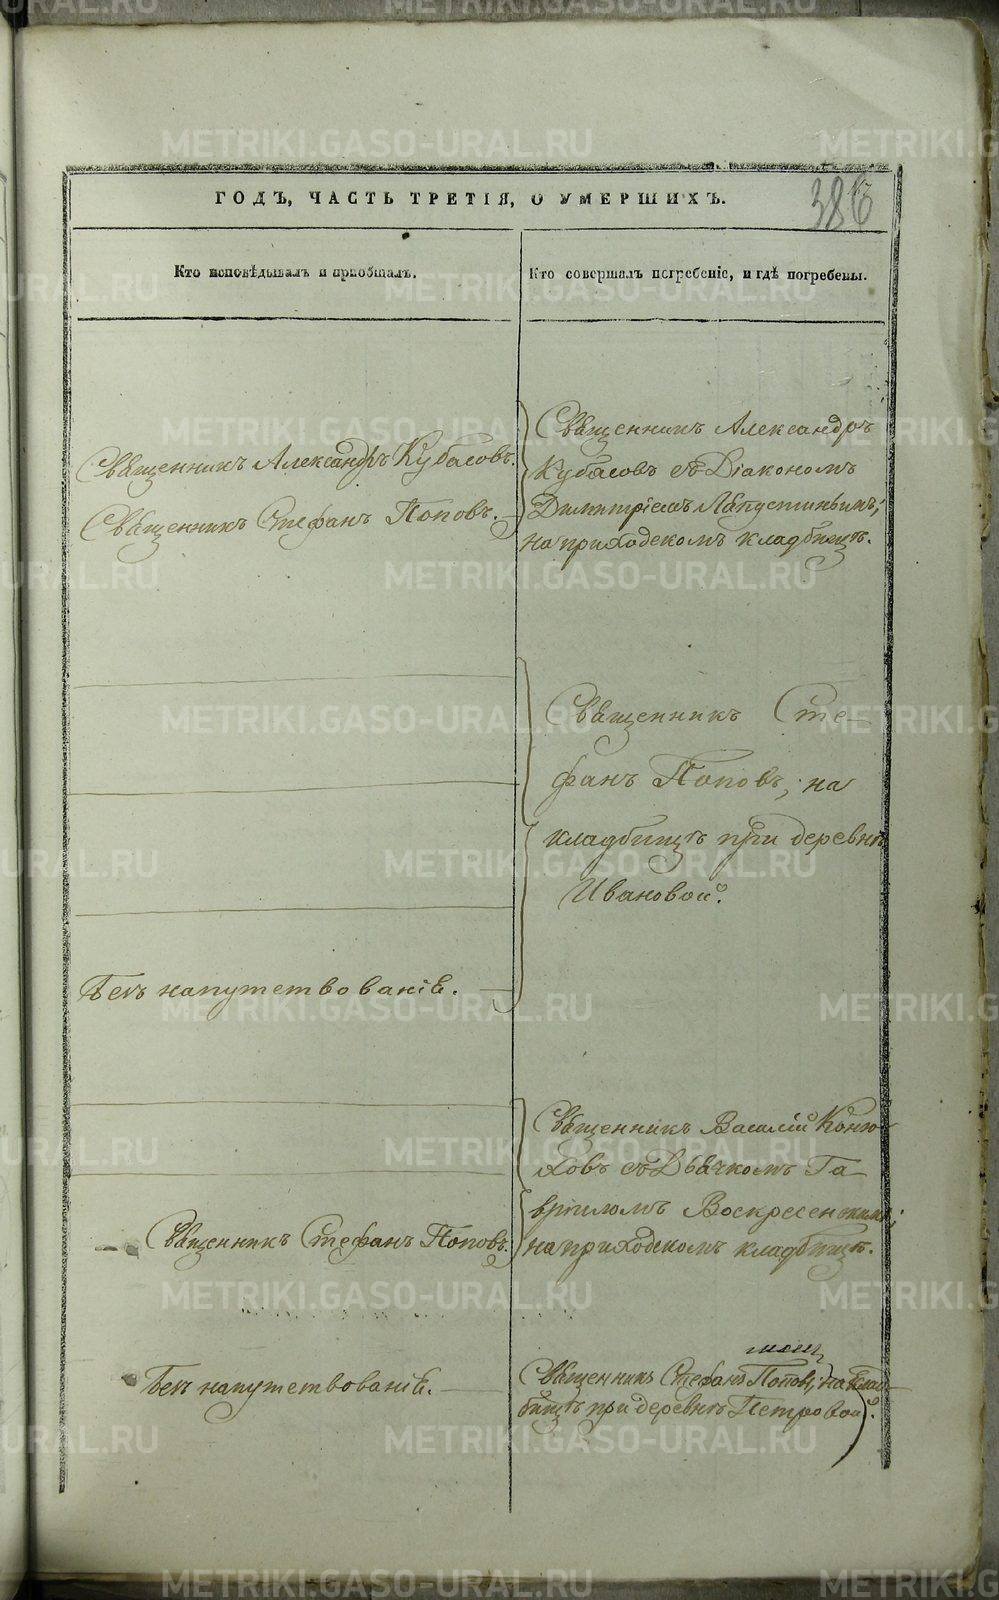 ГОДЪ, ЧАСТЬ ТРЕТІЯ, О УМЕРШИХЪ.
Кто исповѣдывалъ и пріобщалъ.
Кто совершалъ погребеніе, и гдѣ погребены.
Священникъ Александръ Кубасовъ.
Священникъ Стефанъ Поповъ.
Священникъ Александръ
Кубасовъ съ Діакономъ
Димитріемъ Лапустинымъ;
на приходскомъ кладбищѣ.
Священникъ Сте-
фанъ Поповъ, на
кладбищѣ при деревнѣ
Ивановой.
Безъ напутствованія.
Священникъ Василій Коню-
ховъ съ Дьячкомъ Га-
вріиломъ Воскресенскимъ;
на приходскомъ кладбищѣ.
Священникъ Стефанъ Поповъ.
Безъ напутствованія.
Священникъ Стефанъ Поповъ, на клад-
бищѣ при деревнѣ Петровой.
METRIKI.GASO-URAL.RU